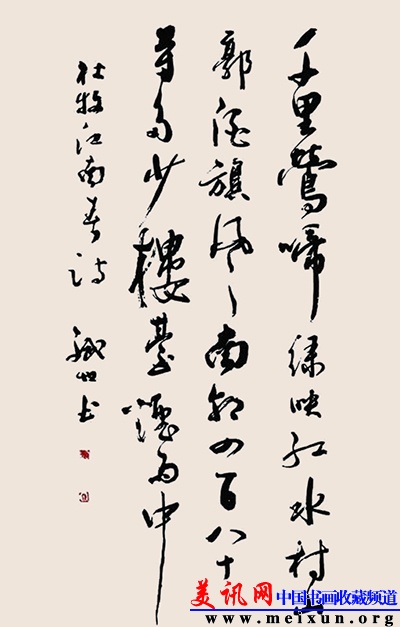 千里鶯啼绿映红水村山
郭酒旗风南朝四百八十
寺多少樓臺煙雨中
杜牧江南春诗 书
美讯网 中国书画收藏频道
www.meixun.org